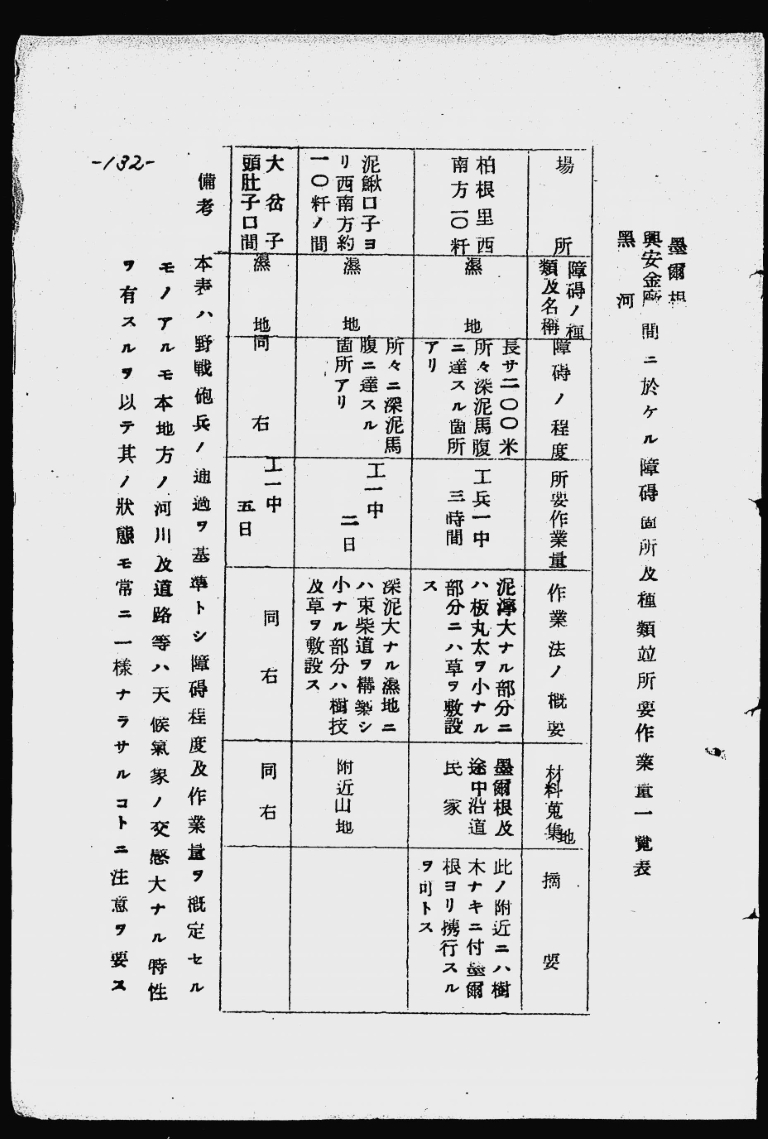 墨爾根
興安金廠
黑河
間ニ於ケル障碍箇所及種類竝所要作業量一覽表
場所
障碍ノ種
類及名稱
障碍ノ程度
所要作業量
作業法ノ概要
材料蒐集地
摘要
柏根里西
南方二〇粁
濕地
長サ二〇〇米
所々深泥馬腹
ニ達スル箇所
アリ
工兵一中
三時間
泥濘大ナル部分ニ
ハ板丸太ヲ小ナル
部分ニハ草ヲ敷設
ス
墨爾根及
途中沿道
民家
此ノ附近ニハ樹
木ナキニ付墨爾
根ヨリ携行スル
ヲ可トス
泥鰍口子ヨ
リ西南方約
一〇粁ノ間
濕地
所々ニ深泥馬
腹ニ達スル
箇所アリ
工一中
二日
深泥大ナル濕地ニ
ハ束柴道ヲ構築シ
小ナル部分ハ樹技
及草ヲ敷設ス
附近山地
大岔子
頭肚子口間
濕地
同右
工一中
五日
同右
同右
備考
本表ハ野戰砲兵ノ通過ヲ基準トシ障碍程度及作業量ヲ概定セル
モノアルモ本地方ノ河川及道路等ハ天候氣象ノ交感大ナル特性
ヲ有スルヲ以テ其ノ狀態モ常ニ一樣ナラサルコトニ注意ヲ要ス
-132-